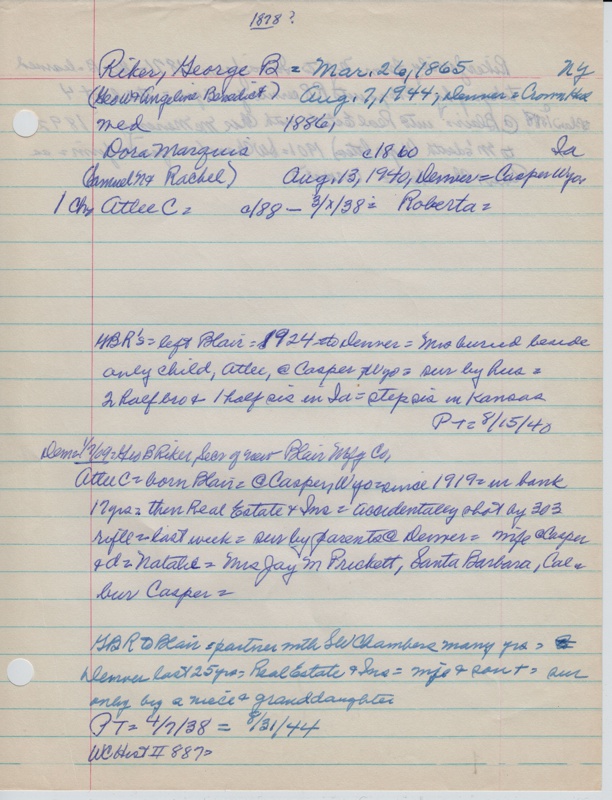 1878?
Riker, George B = Mar. 26, 1865 NY
(Geo W & Angeline Benedict) Aug. 7, 1944, Denver = Crown Hill
med 1886,
Dora Marquis c1860 Ia
(Samuel & Rachel) Aug. 13, 1940, Denver = Casper Wyo
1 Ch, Atlee C = c/88 - 3/x/38 = Roberta =
GBR's = left Blair = 1924 to Denver = Mrs buried beside
only child, Atlee, @ Casper Wyo = sur by hus =
2 half bro & 1 half sis in Ia = step sis in Kansas
PT = 8/15/40
Dem = 1/7/09 = Geo B Riker, Secr of new Blair Mfg Co,
Atlee C = born Blair = @ Casper, Wyo = since 1919 = in bank
17 yrs = then Real Estate & Ins = accidentaley shot by 303
rifle = last week = sur by parents @ Denver = wife @ Casper
& d = Natalie = Mrs Jay M Prickett, Santa Barbara, Cal =
bur Casper =
GBR to Blair = partner with SW Chambers many yrs =
Denver last 25 yrs = Real Estate & Ins = wife & son + = sur
only by a niece & granddaughter
PT = 4/7/38 = 8/31/44
WC Hist II 887 =